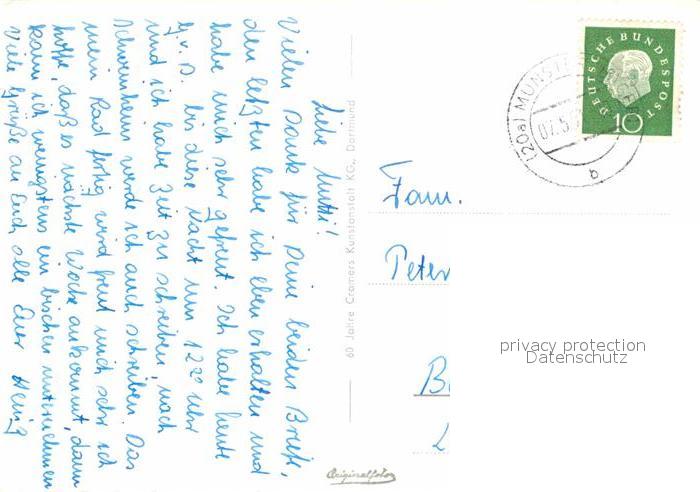 Liebe Mutti!
Vielen Dank für Deine beiden Briefe,
den letzten habe ich eben erhalten und
habe mich sehr gefreut. Ich habe heute
G.v.D. bis diese Nacht um 12ºº Uhr
und ich habe Zeit zu schreiben, nach
Schweinheim werde ich auch schreiben. Das
mein Rad fertig wird freut mich sehr ich
hoffe, daß es nächste Woche ankommt, dann
kann ich wenigstens ein bischen unternehmen
Viele Grüße an Euch alle Euer Heinz
60 Jahre Cramers Kunstanstalt KG., Dortmund
Originalfotos
DEUTSCHE BUNDESPOST
10
(20a) MUNSTER
07.5.
b
Fam.
Peter
privacy protection
Datenschutz